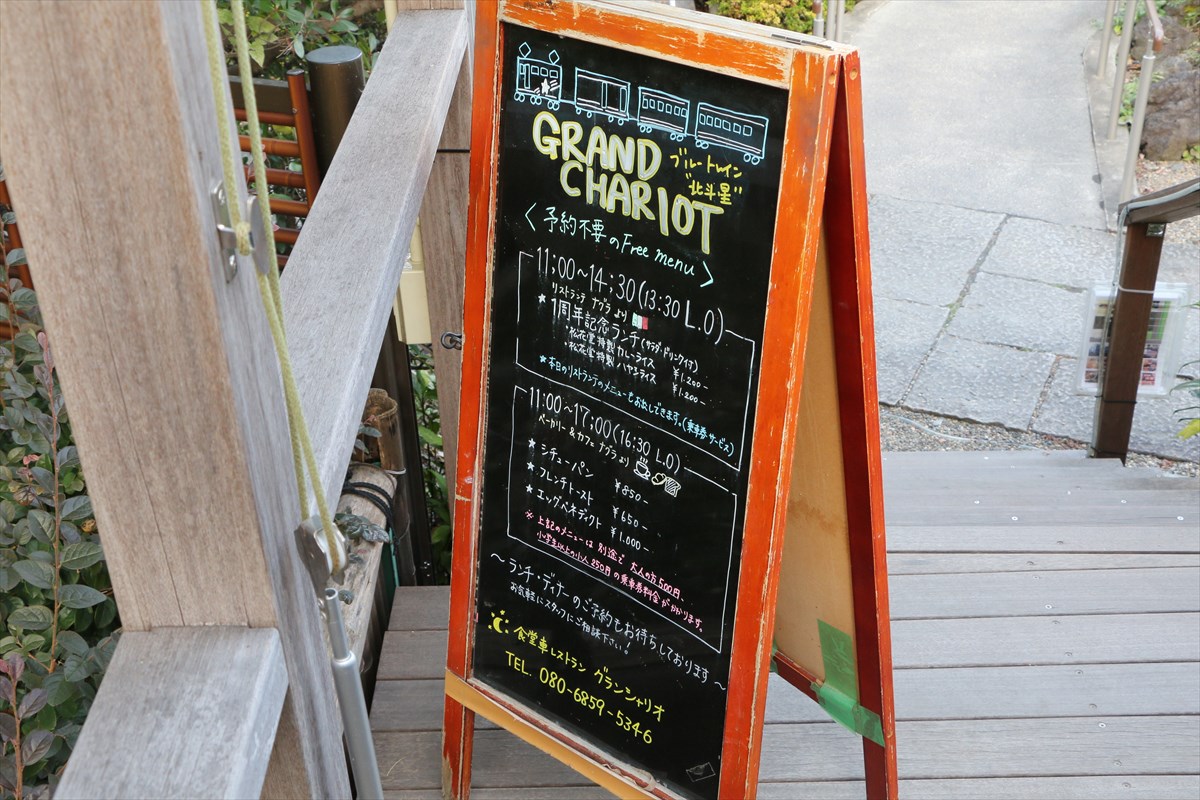 GRAND
ブルートレイン
CHARIOT
"北斗星"
〈予約不要のFree menu〉
11;00〜14;30(13:30 L.O)
リストランテ ナグラ より
★1周年記念ランチ(サラダ・ドリンク付)
・松花堂特製カレーライス ¥1,200-
・松花堂特製ハヤシライス ¥1,200-
★本日のリストランテのメニューもお出しできます。(乗車券サービス)
11:00〜17;00(16:30 L.O)
ベーカリー&カフェ ナグラより
★シチューパン ¥850-
★フレンチトースト ¥650-
★エッグベネディクト ¥1,000-
※上記のメニューは別途で大人の方500円、
小学生以上の小人250円の乗車券料金がかかります。
〜ランチ・ディナーのご予約もお待ちしております〜
お気軽にスタッフにご相談下さい!
食堂車レストラン グランシャリオ
TEL. 080-6859-5346